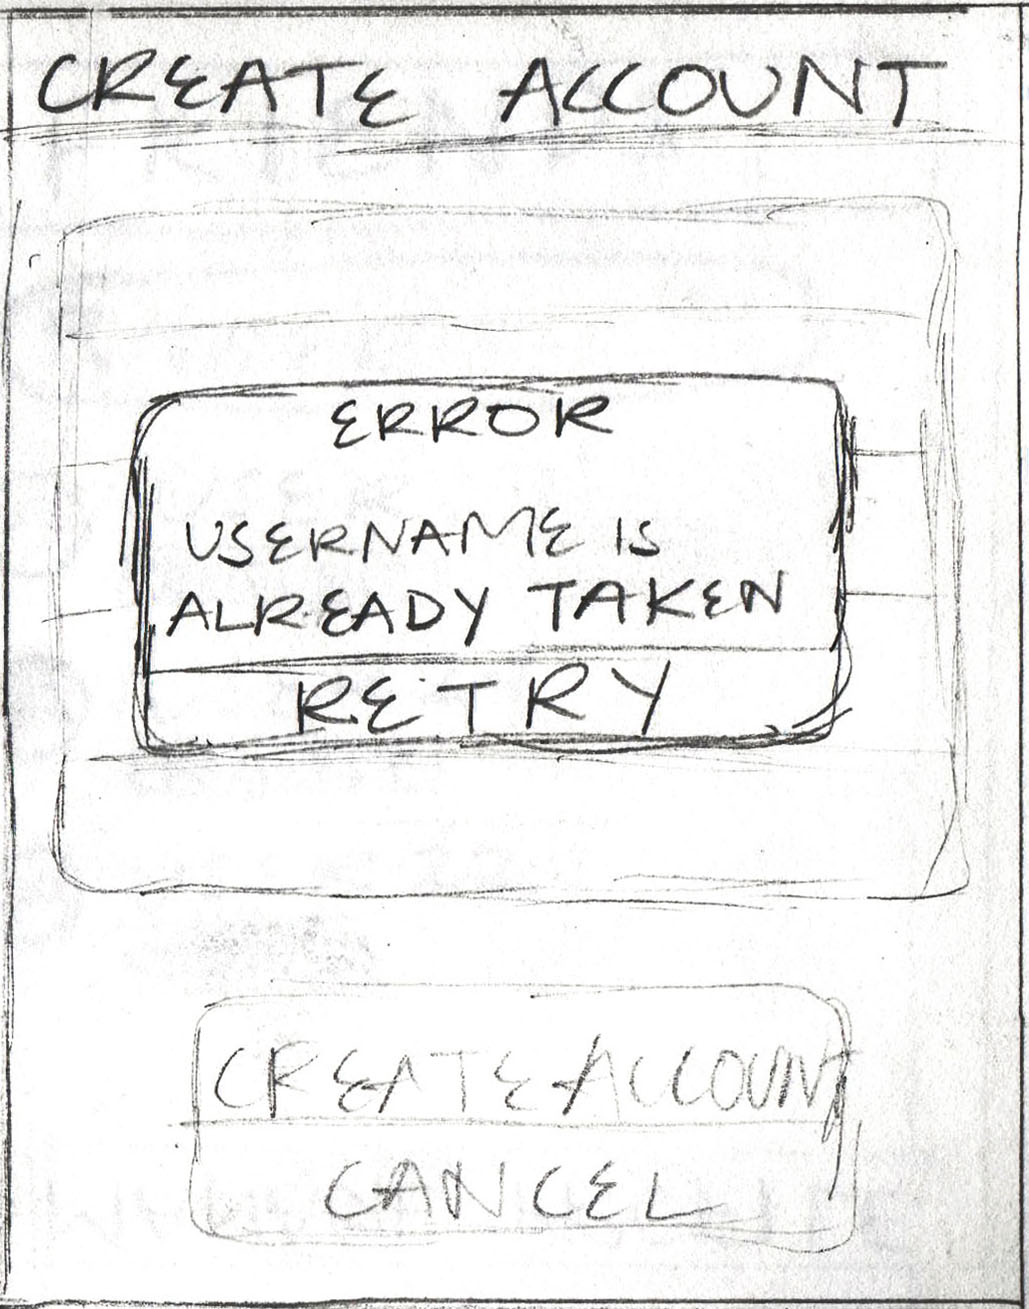 CREATE ACCOUNT
ERROR
USERNAME IS
ALREADY TAKEN
RETRY
CREATE ACCOUNT
CANCEL